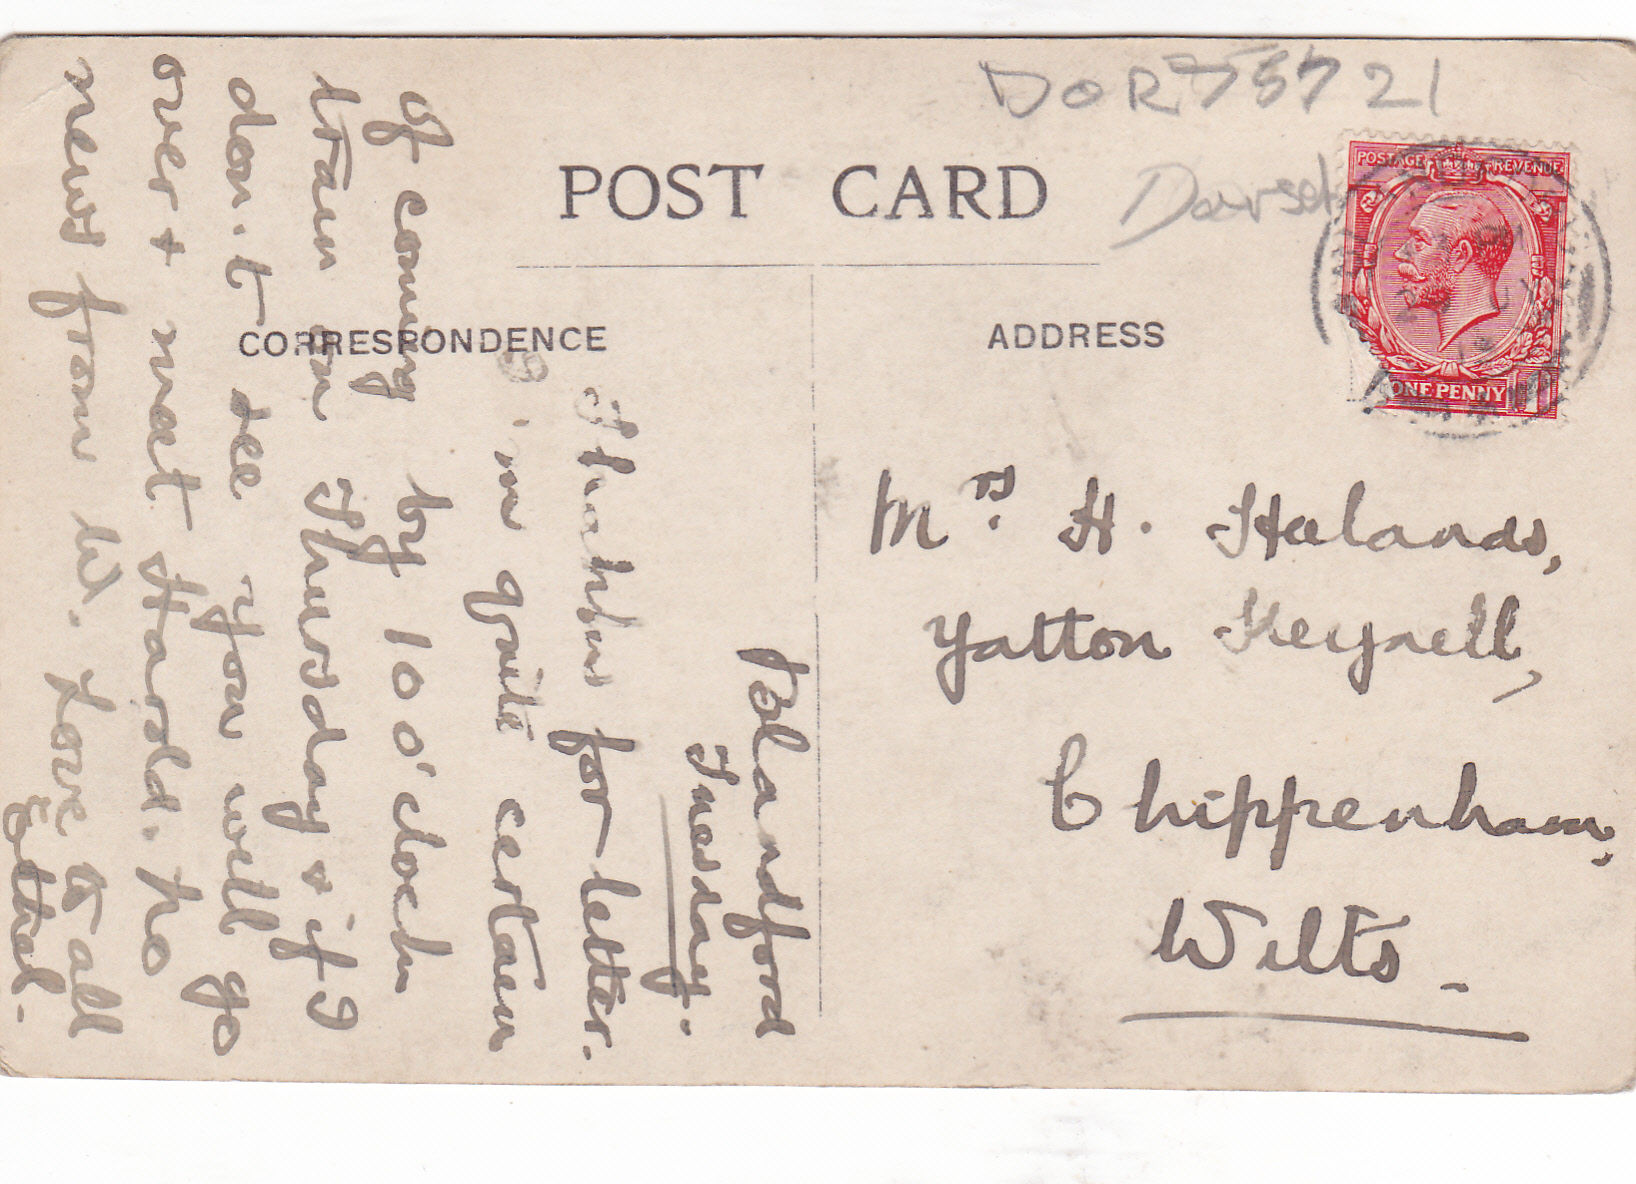 DOR 75721
Dorset
POST CARD
CORRESPONDENCE
ADDRESS
POSTAGE REVENUE
ONE PENNY
1
Mrs. H. Halands,
Yatton Keynell,
Chippenham,
Wilts.
Blandford
Tuesday.
Thanks for letter.
I'm quite certain
of coming by 10 o'clock
train on Thursday & if I
don't see you will go
over & meet Harold. No
news from W. Love to all
Ethel.